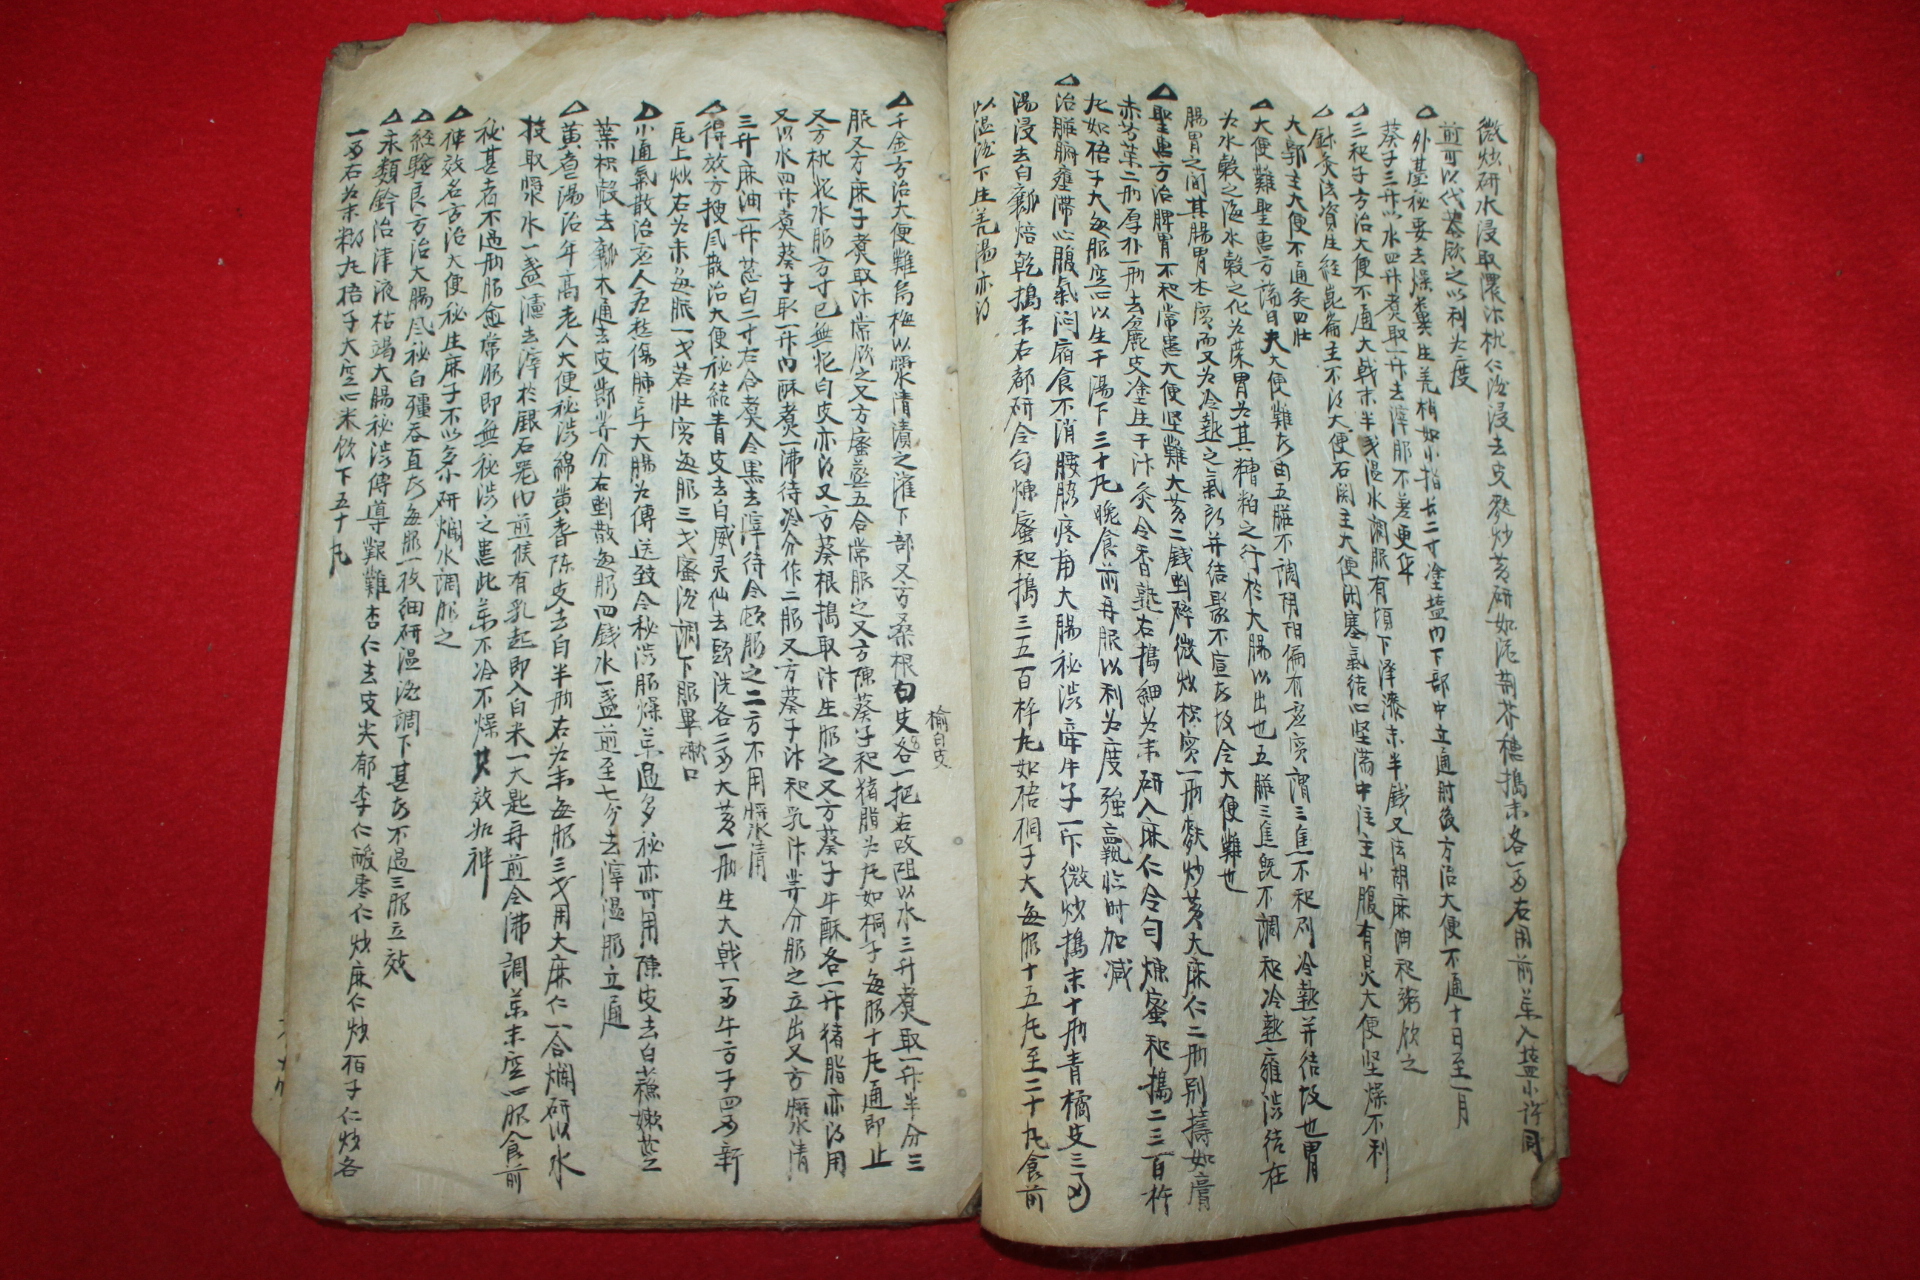 微炒研水浸取濃汁桃仁湯浸去皮麩炒黃研如泥荊芥穗搗末各一兩右用前藥入塩小許同
煎可以代茶飲之以利為度
△外臺秘要去燥糞生羌梢如小指長二寸塗塩內下部中立通肘後方治大便不通十日至一月
葵子三升以水四升煮取一升去滓服不差更作
△三和子方治大便不通大戟末半戔溫水調服有頃下泽漆末半錢又法胡麻油和粥飲之
△鍼灸法資生經崑崙主不得大便石関主大便閉塞氣結心坚滿中注主小腹有熱大便坚燥不利
大郭主大便不通灸四壯
△大便難聖惠方論曰夫大便難者由五臟不調陰陽偏有虛實謂三焦不和則冷熱并結故也胃
為水穀之海水穀之化為荣胃為其糟粕之行於大腸以出也五臟三焦既不調和冷熱壅澁結在
腸胃之间其腸胃本實而又為冷熱之氣所并結聚不宣者故令大便難也
△聖惠方治脾胃不和常患大便坚難大黃二錢剉碎微炒枳實一兩麩炒黃大麻仁二兩別擣如膏
赤芍藥二兩厚朴一兩去麁皮塗生干汁灸令香熟右搗細為末研入麻仁令勻煉蜜和搗二三百杵
丸如梧子大每服空心以生干湯下三十丸晚食前再服以利為度強羸臨时加减
△治臟腑壅滞心腹氣闷宿食不消腰脇疼痛大腸祕澁牽牛子一斤微炒搗末十兩青橘皮三兩
湯浸去白瓤焙乾搗末右都研令勻煉蜜和搗三五百杵丸如梧桐子大每服十五丸至二十丸食前
以溫湯下生羌湯亦得
△千金方治大便難烏梅以漿清漬之灌下部又方桑根白皮榆白皮各一把右㕮咀以水三升煮取一升半分三
服又方麻子煮取汁常飲之又方蜜蒸五合常服之又方陳葵子和猪脂为丸如桐子每服十丸通即止
又方桃花水服方寸匕無花白皮亦得又方葵根搗取汁生服之又方葵子牛酥各一升猪脂亦得用
又以水四升煮葵子取一升內酥煮一沸待冷分作二服又方葵子汁和乳汁等分服之立出又方漿水清
三升麻油一升葱白二寸右合煮令黑去滓待冷頓服之二方不用漿水清
△得效方搜風散治大便秘結青皮去白威灵仙去頭洗各二兩大黃一兩生大戟一兩牛旁子四兩新
瓦上炒右为末每服一戔若壯實每服三戔蜜湯調下服畢漱口
△小通氣散治虛人虛愁傷肺与大腸为傳送致令秘澁服燥藥過多秘亦可用陳皮去白蘓嫩莖
葉枳殼去瓤木通去皮節等分右剉散每服四錢水一盞煎至七分去滓溫服立通
△黃耆湯治年高老人大便秘澁綿黃耆陈皮去白半兩右为末每服三戔用大麻仁一合爛研以水
投取漿水一盞濾去滓於銀石器內煎候有乳起即入白米一大匙再煎令沸調藥末空心服食前
秘甚者不過兩服愈常服即無秘澁之患此藥不冷不燥其效如神
△神效名方治大便秘生麻子不以多小研爛水調服之
△経驗良方治大腸風秘白殭吞直者每服一枚細研溫湯調下甚者不過三服立效
△永類鈴治津液枯竭大腸秘澁傳導艱難杏仁去皮尖郁李仁酸枣仁炒麻仁炒栢子仁炒各
一兩右为末糊丸梧子大空心米飲下五十丸